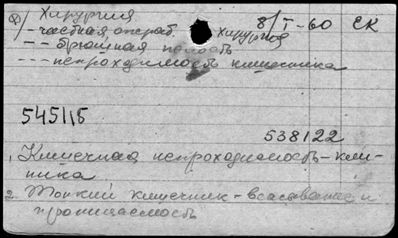 Ф) Хирургия 8/I-60 СК
- частная операт. хирургия
- - брюшная полость
- - - непроходимость кишечника
545115
538122
1. Кишечная непроходимость - кли-
ника
2. Тонкий кишечник - всасывание и
проницаемость